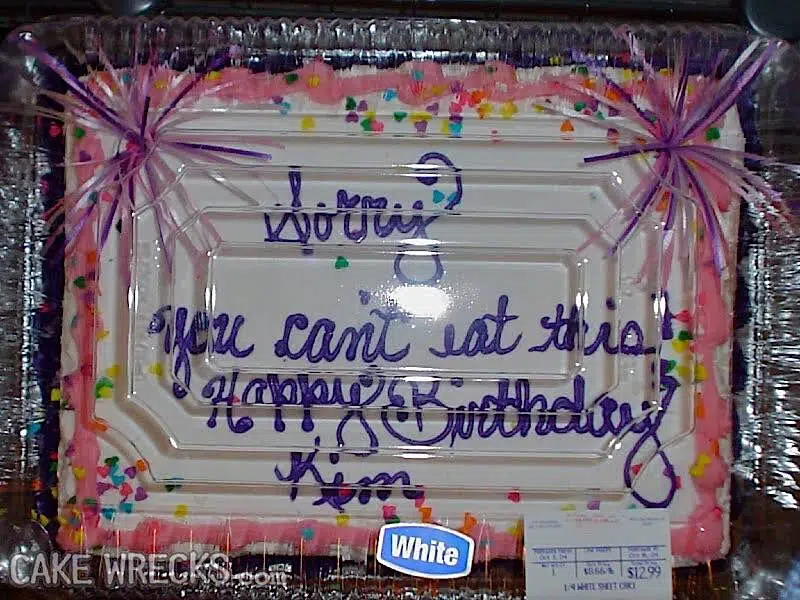 Sorry
You can't eat this!
Happy Birthday
Kim
White
$12.99
1/4 WHITE SHEET CAKE
CAKE WRECKS.com